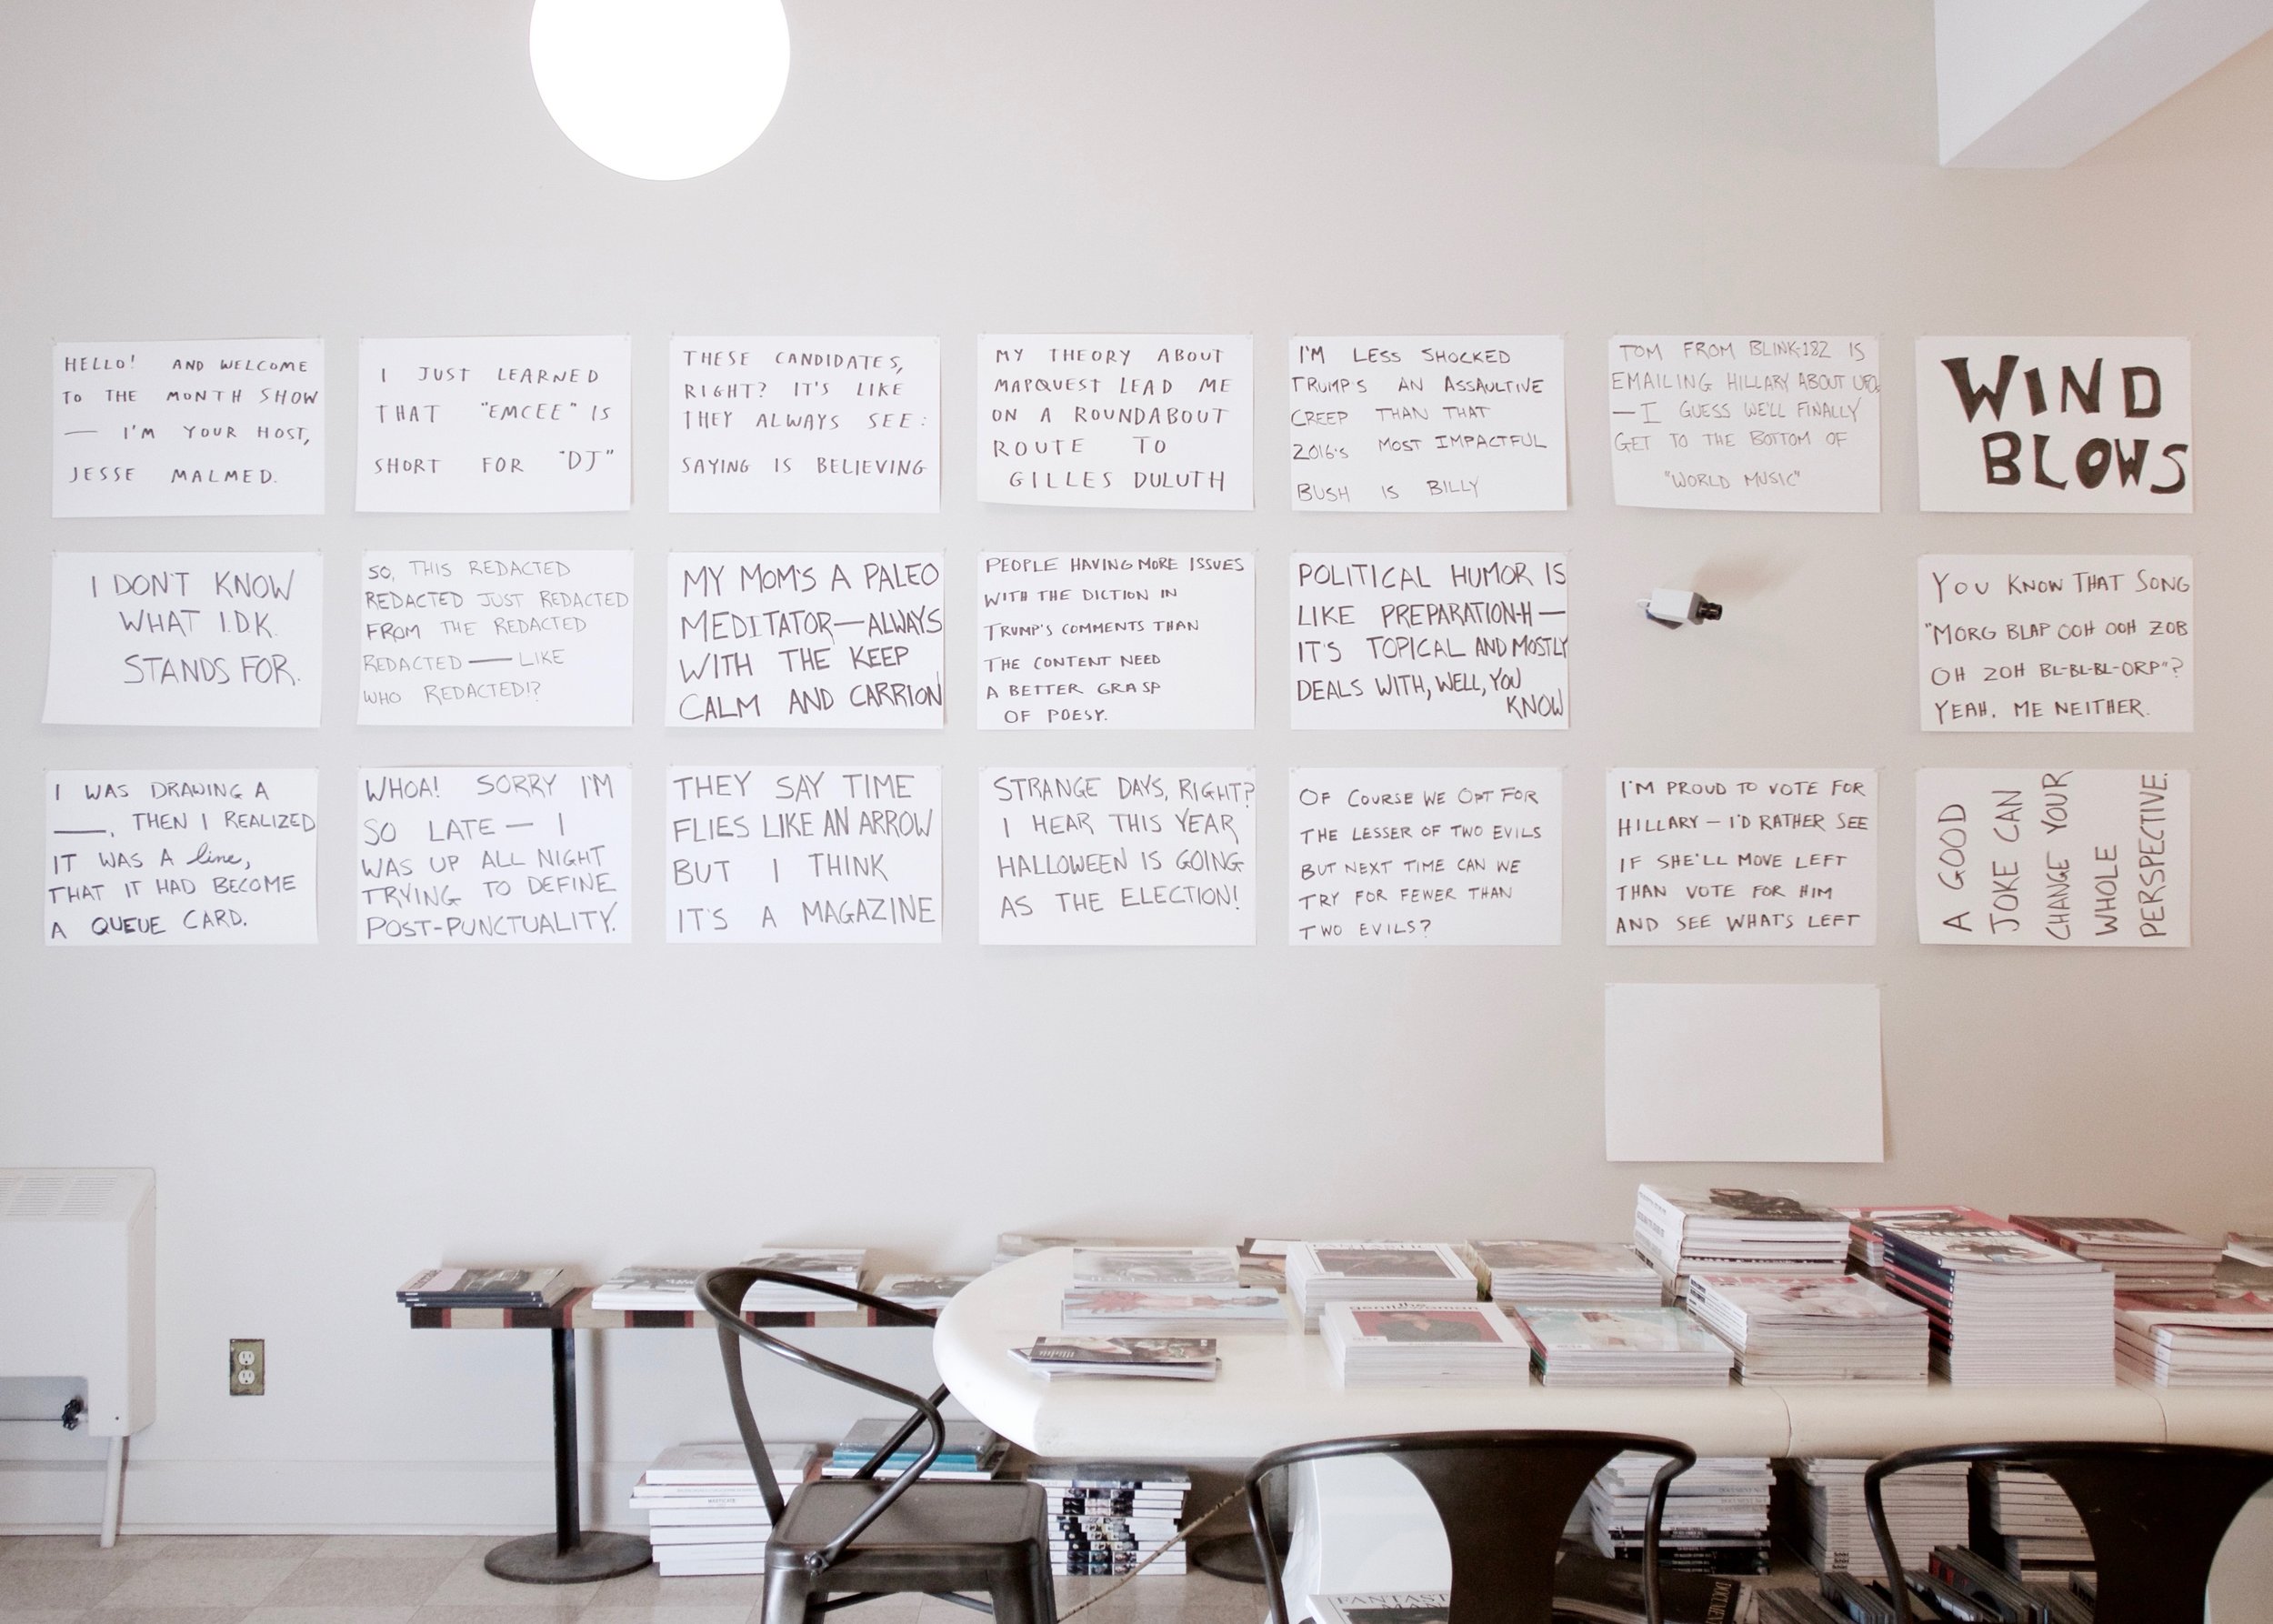 HELLO! AND WELCOME
TO THE MONTH SHOW
— I'M YOUR HOST,
JESSE MALMED.
I JUST LEARNED
THAT "EMCEE" IS
SHORT FOR "DJ"
THESE CANDIDATES,
RIGHT? IT'S LIKE
THEY ALWAYS SEE:
SAYING IS BELIEVING
MY THEORY ABOUT
MAPQUEST LEAD ME
ON A ROUNDABOUT
ROUTE TO
GILLES DULUTH
I'M LESS SHOCKED
TRUMP'S AN ASSAULTIVE
CREEP THAN THAT
2016'S MOST IMPACTFUL
BUSH IS BILLY
TOM FROM BLINK-182 IS
EMAILING HILLARY ABOUT UFOs
— I GUESS WE'LL FINALLY
GET TO THE BOTTOM OF
"WORLD MUSIC"
WIND
BLOWS
I DON'T KNOW
WHAT I.D.K.
STANDS FOR.
SO, THIS REDACTED
REDACTED JUST REDACTED
FROM THE REDACTED
REDACTED — LIKE
WHO REDACTED!?
MY MOM'S A PALEO
MEDITATOR—ALWAYS
WITH THE KEEP
CALM AND CARRION
PEOPLE HAVING MORE ISSUES
WITH THE DICTION IN
TRUMP'S COMMENTS THAN
THE CONTENT NEED
A BETTER GRASP
OF POESY.
POLITICAL HUMOR IS
LIKE PREPARATION-H —
IT'S TOPICAL AND MOSTLY
DEALS WITH, WELL, YOU
KNOW
YOU KNOW THAT SONG
"MORG BLAP OOH OOH ZOB
OH ZOH BL-BL-BL-ORP"?
YEAH. ME NEITHER.
I WAS DRAWING A
—, THEN I REALIZED
IT WAS A line,
THAT IT HAD BECOME
A QUEUE CARD.
WHOA! SORRY I'M
SO LATE — I
WAS UP ALL NIGHT
TRYING TO DEFINE
POST-PUNCTUALITY.
THEY SAY TIME
FLIES LIKE AN ARROW
BUT I THINK
IT'S A MAGAZINE
STRANGE DAYS, RIGHT?
I HEAR THIS YEAR
HALLOWEEN IS GOING
AS THE ELECTION!
OF COURSE WE OPT FOR
THE LESSER OF TWO EVILS
BUT NEXT TIME CAN WE
TRY FOR FEWER THAN
TWO EVILS?
I'M PROUD TO VOTE FOR
HILLARY — I'D RATHER SEE
IF SHE'LL MOVE LEFT
THAN VOTE FOR HIM
AND SEE WHAT'S LEFT
A GOOD
JOKE CAN
CHANGE YOUR
WHOLE
PERSPECTIVE.
FANTASTIC
the
gentlewoman
FANTASTIC
MAN
DOCUMENT